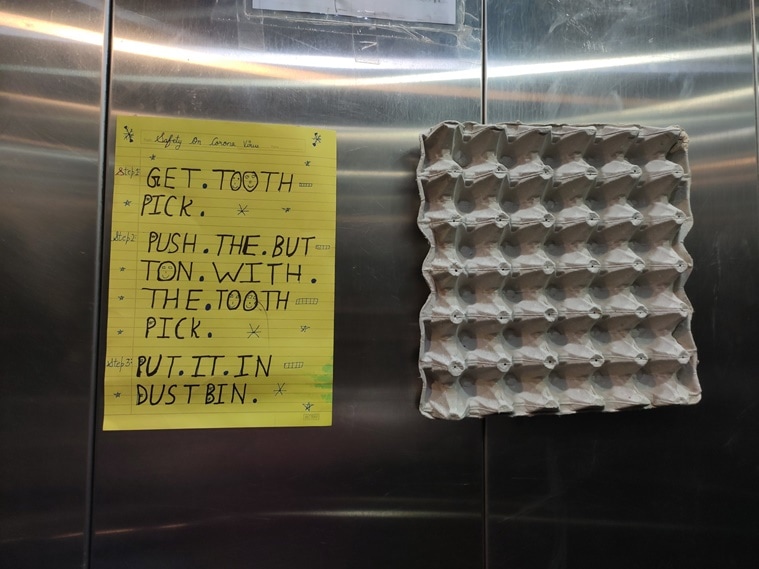 Safety On Corona Virus
Step1: GET.TOOTH
PICK.
Step2: PUSH.THE.BUT
TON.WITH.
THE.TOOTH
PICK.
Step3: PUT.IT.IN
DUSTBIN.